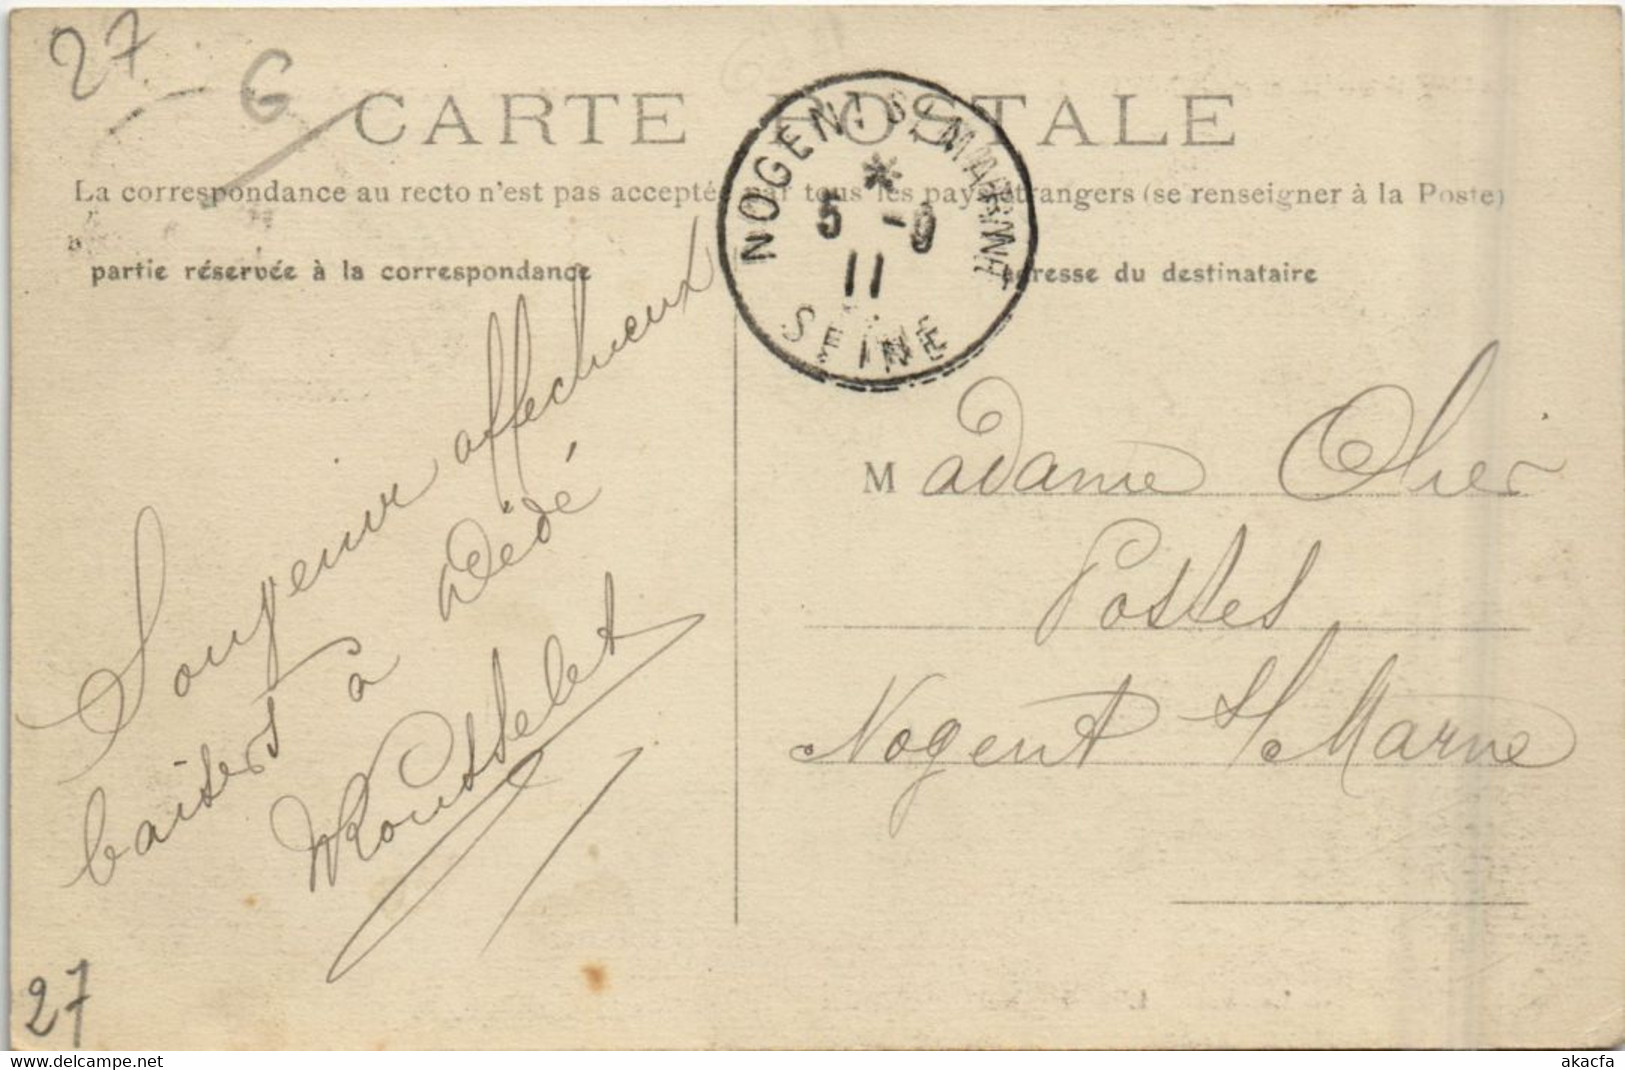 27
G
CARTE POSTALE
La correspondance au recto n'est pas acceptée par tous les pays étrangers (se renseigner à la Poste)
partie réservée à la correspondance
adresse du destinataire
NOGENT S/ MARNE
5 - 9
11
SEINE
Souvenir affectueux
baisers à Dédé
Rousselet
Madame Olier
Postes
Nogent s/ Marne
27
www.delcampe.net
akacfa